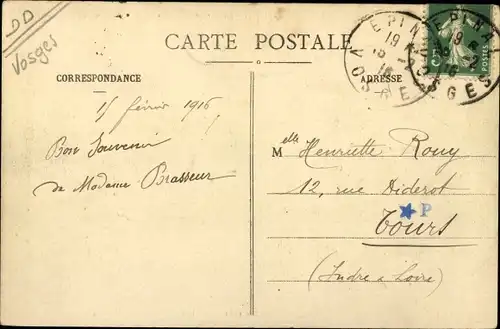 DD
Vosges
CARTE POSTALE
CORRESPONDANCE
ADRESSE
EPINAL
VOSGES
POSTES
15 février 1916
Bon Souvenir
de Madame Brasseur
Melle Henriette Rouy
12, rue Diderot
P
Tours
(Indre & Loire)